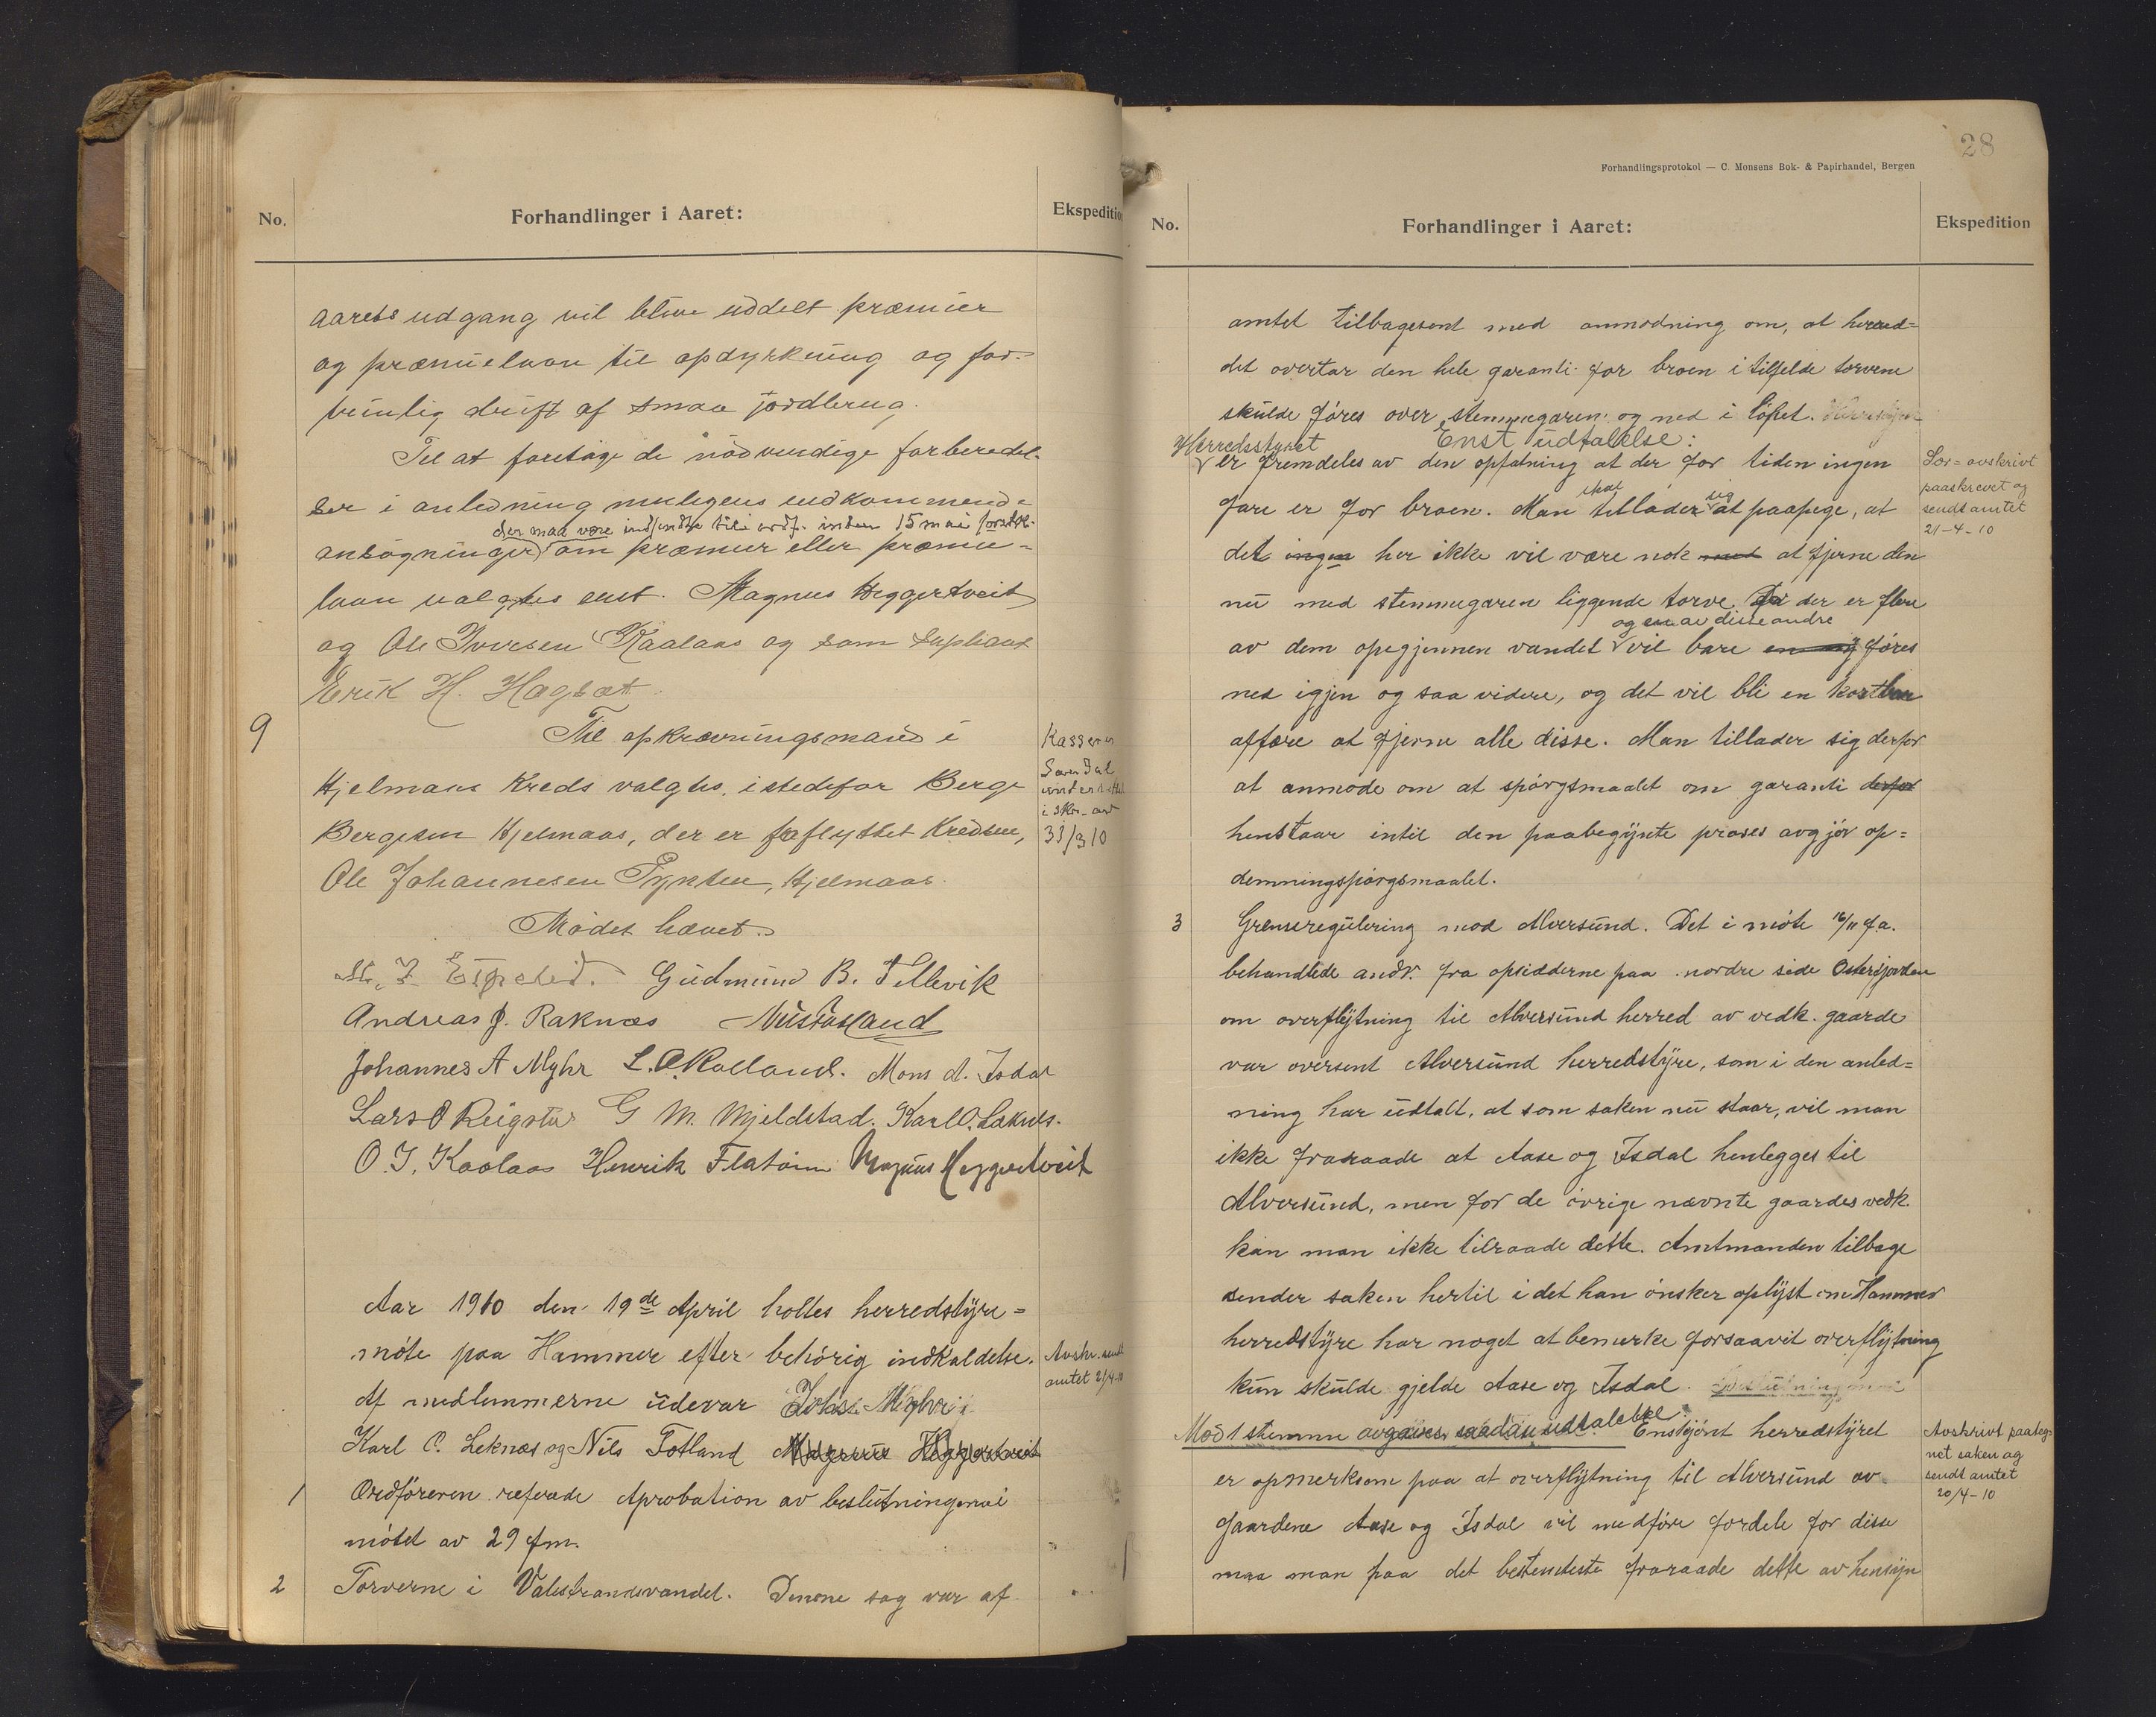 No.
Forhandlinger i Aaret:
Ekspedition
aarets udgang vil blive uddelt præmier
og præmielaan til opdyrkning og for-
trinlig drift af smaa jordbrug.
Til at foretage de nödvendige forberedel-
ser i anledning muligens indkommende
der maa være indsendte til ordf. inden 15 mai førstk.
ansögninger om præmier eller præmie-
laan valgtes enst. Magnus Heggertveit
og Ole Iversen Kaalaas og som Supleant
Erik H. Hagsæt.
9
Til opkrævningsmand i
Hjelmaas Kreds valgtes, istedefor Berge
Bergesen Hjelmaas, der er fraflyttet Kredsen,
Ole Johannesen Tynken, Hjelmaas.
Kasserer
i skr. av
31/3 10
Mödet hævet.
Gudmund B. Tellevik
Andreas J. Raknæs
Johannes A Myhr L. O. Rolland. Mons A. Isdal
Lars O Reigstad G M. Mjeldstad. Karl O. Leknes.
O. I. Kaalaas Henrik Flatöien Magnus Heggertveit
Aar 1910 den 19de April holtes herredstyre=
möte paa Hammer efter behörig indkaldelse.
Avskr. sendt
amtet 21/4-10
Af medlemmerne udevar Johs. Myhr
Karl O. Leknæs og Nils Totland Magnus Heggertveit
1
Ordföreren referede Aprobation av beslutninger i
mötet av 29 f.m.
2
Torverne i Valestrandsvandet. Denne sag var af
28
Forhandlingsprotokol — C. Monsens Bok- & Papirhandel, Bergen
No.
Forhandlinger i Aaret:
Ekspedition
amtet tilbagesent med anmodning om, at herred=
det overtar den hele garanti for broen i tilfelde torvene
skulde föres over stemmegaren og ned i löpet.
Herredsstyret
Enst udtalelse:
er fremdeles av den opfatning at der for tiden ingen
fare er for broen. Man skal tillader sig at paapege, at
Sær=avskrivt
paaskrevet og
sendt amtet
21-4-10
det ingen her ikke vil være nok med at fjerne den
nu med stemmegaren liggende torve. Da der er flere
og en av disse andre
av dem opigjennem vandet vil bare en ny föres
ned igjen og saa videre, og det vil bli en kostbar
affære at fjerne alle disse. Man tillader sig derfor
at anmode om at spörgsmaalet om garanti derfor
henstaar intil den paabegynte proses avgjör op=
demningspörgsmaalet.
3
Grenseregulering mod Alversund. Det i möte 16/11 f.a.
behandlede andr. fra opsidderne paa nordre side Osterfjorden
om overflytning til Alversund herred av vedk. gaarde
var oversent Alversund herredstyre, som i den anled=
ning har udtalt, at som saken nu staar, vil man
ikke fraraade at Aase og Isdal henlegges til
Alversund, men for de övrige nævnte gaardes vedk.
kan man ikke tilraade dette. Amtmanden tilbage
sender saken hertil idet han önsker oplyst om Hammer
herredstyre har noget at bemerke forsaavit overflytning
kun skulde gjelde Aase og Isdal.
Mod 1 stemme avgaves saadan udtalelse: Enskjönt herredstyret
er opmerksom paa at overflytning til Alversund av
gaardene Aase og Isdal vil medföre fordele for disse
maa man paa det bestemteste fraraade dette av hensyn
Avskrivt paateg-
net saken og
sendt amtet
20/4-10